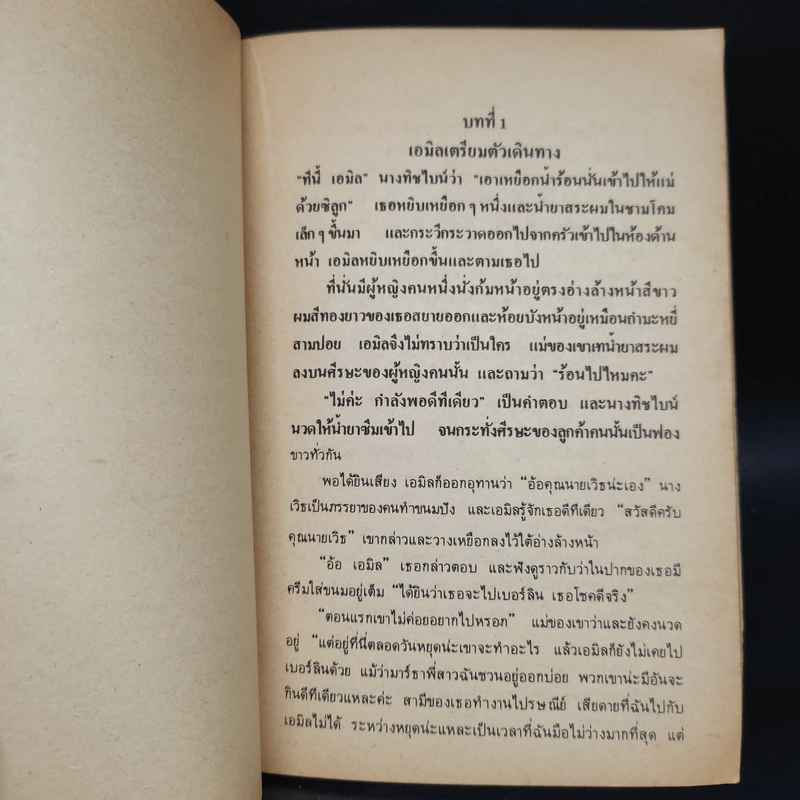 บทที่ 1
เอมิลเตรียมตัวเดินทาง
“ที่นี่ เอมิล” นางทิชไบน์ว่า “เอาเหยือกน้ำร้อนนั่นเข้าไปให้แม่
ด้วยซิลูก” เธอหยิบเหยือก ๆ หนึ่งและน้ำยาสระผมในชามโคม
เล็ก ๆ ขึ้นมา และกระวีกระวาดออกไปจากครัวเข้าไปในห้องด้าน
หน้า เอมิลหยิบเหยือกขึ้นและตามเธอไป
ที่นั่นมีผู้หญิงคนหนึ่งนั่งก้มหน้าอยู่ตรงอ่างล้างหน้าสีขาว
ผมสีทองยาวของเธอสยายออกและห้อยบังหน้าอยู่เหมือนกำมะหยี่
สามปอย เอมิลจึงไม่ทราบว่าเป็นใคร แม่ของเขาเทน้ำยาสระผม
ลงบนศีรษะของผู้หญิงคนนั้น และถามว่า “ร้อนไปไหมคะ”
“ไม่ค่ะ กำลังพอดีทีเดียว” เป็นคำตอบ และนางทิชไบน์
นวดให้น้ำยาซึมเข้าไป จนกระทั่งศีรษะของลูกค้าคนนั้นเป็นฟอง
ขาวทั่วกัน
พอได้ยินเสียง เอมิลก็ออกอุทานว่า “อ้อคุณนายเวิธน่ะเอง” นาง
เวิธเป็นภรรยาของคนทำขนมปัง และเอมิลรู้จักเธอดีทีเดียว “สวัสดีครับ
คุณนายเวิธ” เขากล่าวและวางเหยือกลงไว้ใต้อ่างล้างหน้า
“อ้อ เอมิล” เธอกล่าวตอบ และฟังดูราวกับว่าในปากของเธอมี
ครีมใส่ขนมอยู่เต็ม “ได้ยินว่าเธอจะไปเบอร์ลิน เธอโชคดีจริง”
“ตอนแรกเขาไม่ค่อยอยากไปหรอก” แม่ของเขาว่าและยังคงนวด
อยู่ “แต่อยู่ที่นี่ตลอดวันหยุดน่ะเขาจะทำอะไร แล้วเอมิลก็ยังไม่เคยไป
เบอร์ลินด้วย แม้ว่ามาร์ธาพี่สาวฉันชวนอยู่ออกบ่อย พวกเขาน่ะมีอันจะ
กินดีทีเดียวแหละค่ะ สามีของเธอทำงานไปรษณีย์ เสียดายที่ฉันไปกับ
เอมิลไม่ได้ ระหว่างหยุดน่ะแหละเป็นเวลาที่ฉันมือไม่ว่างมากที่สุด แต่